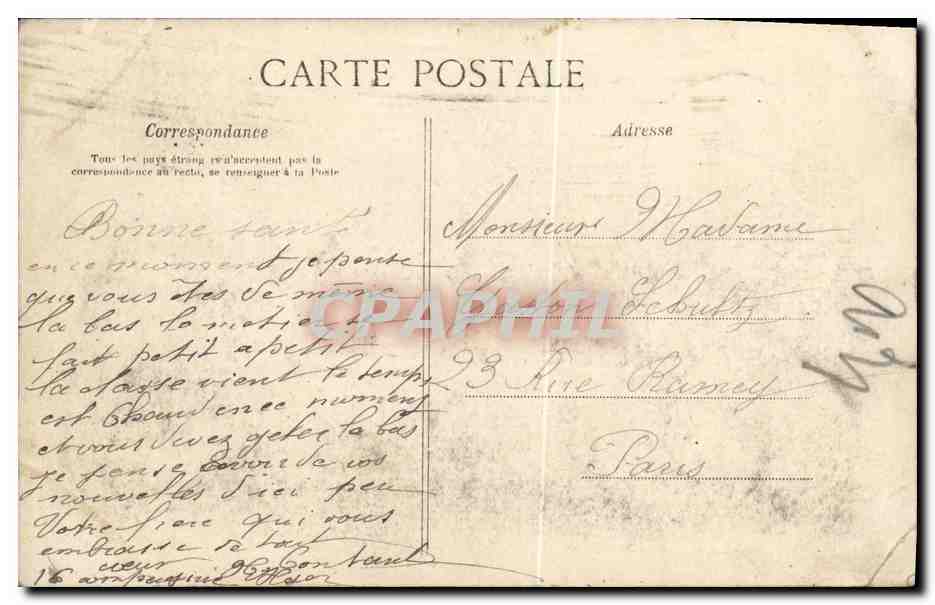 CARTE POSTALE
Correspondance
Tous les pays étrangers n'acceptent pas la
correspondance au recto, se renseigner à la Poste
Bonne santé
en ce moment je pense
que vous êtes de même
la bas le
fait petit a petit
la classe vient le temps
est chaud en ce moment
et vous devez geler la bas
je pense avoir de vos
nouvelles d'ici peu
Votre frere qui vous
embrasse de tout
cœur
16
Adresse
Monsieur Madame
Schultz
23 Rue Ramey
Paris
CPAPHIL